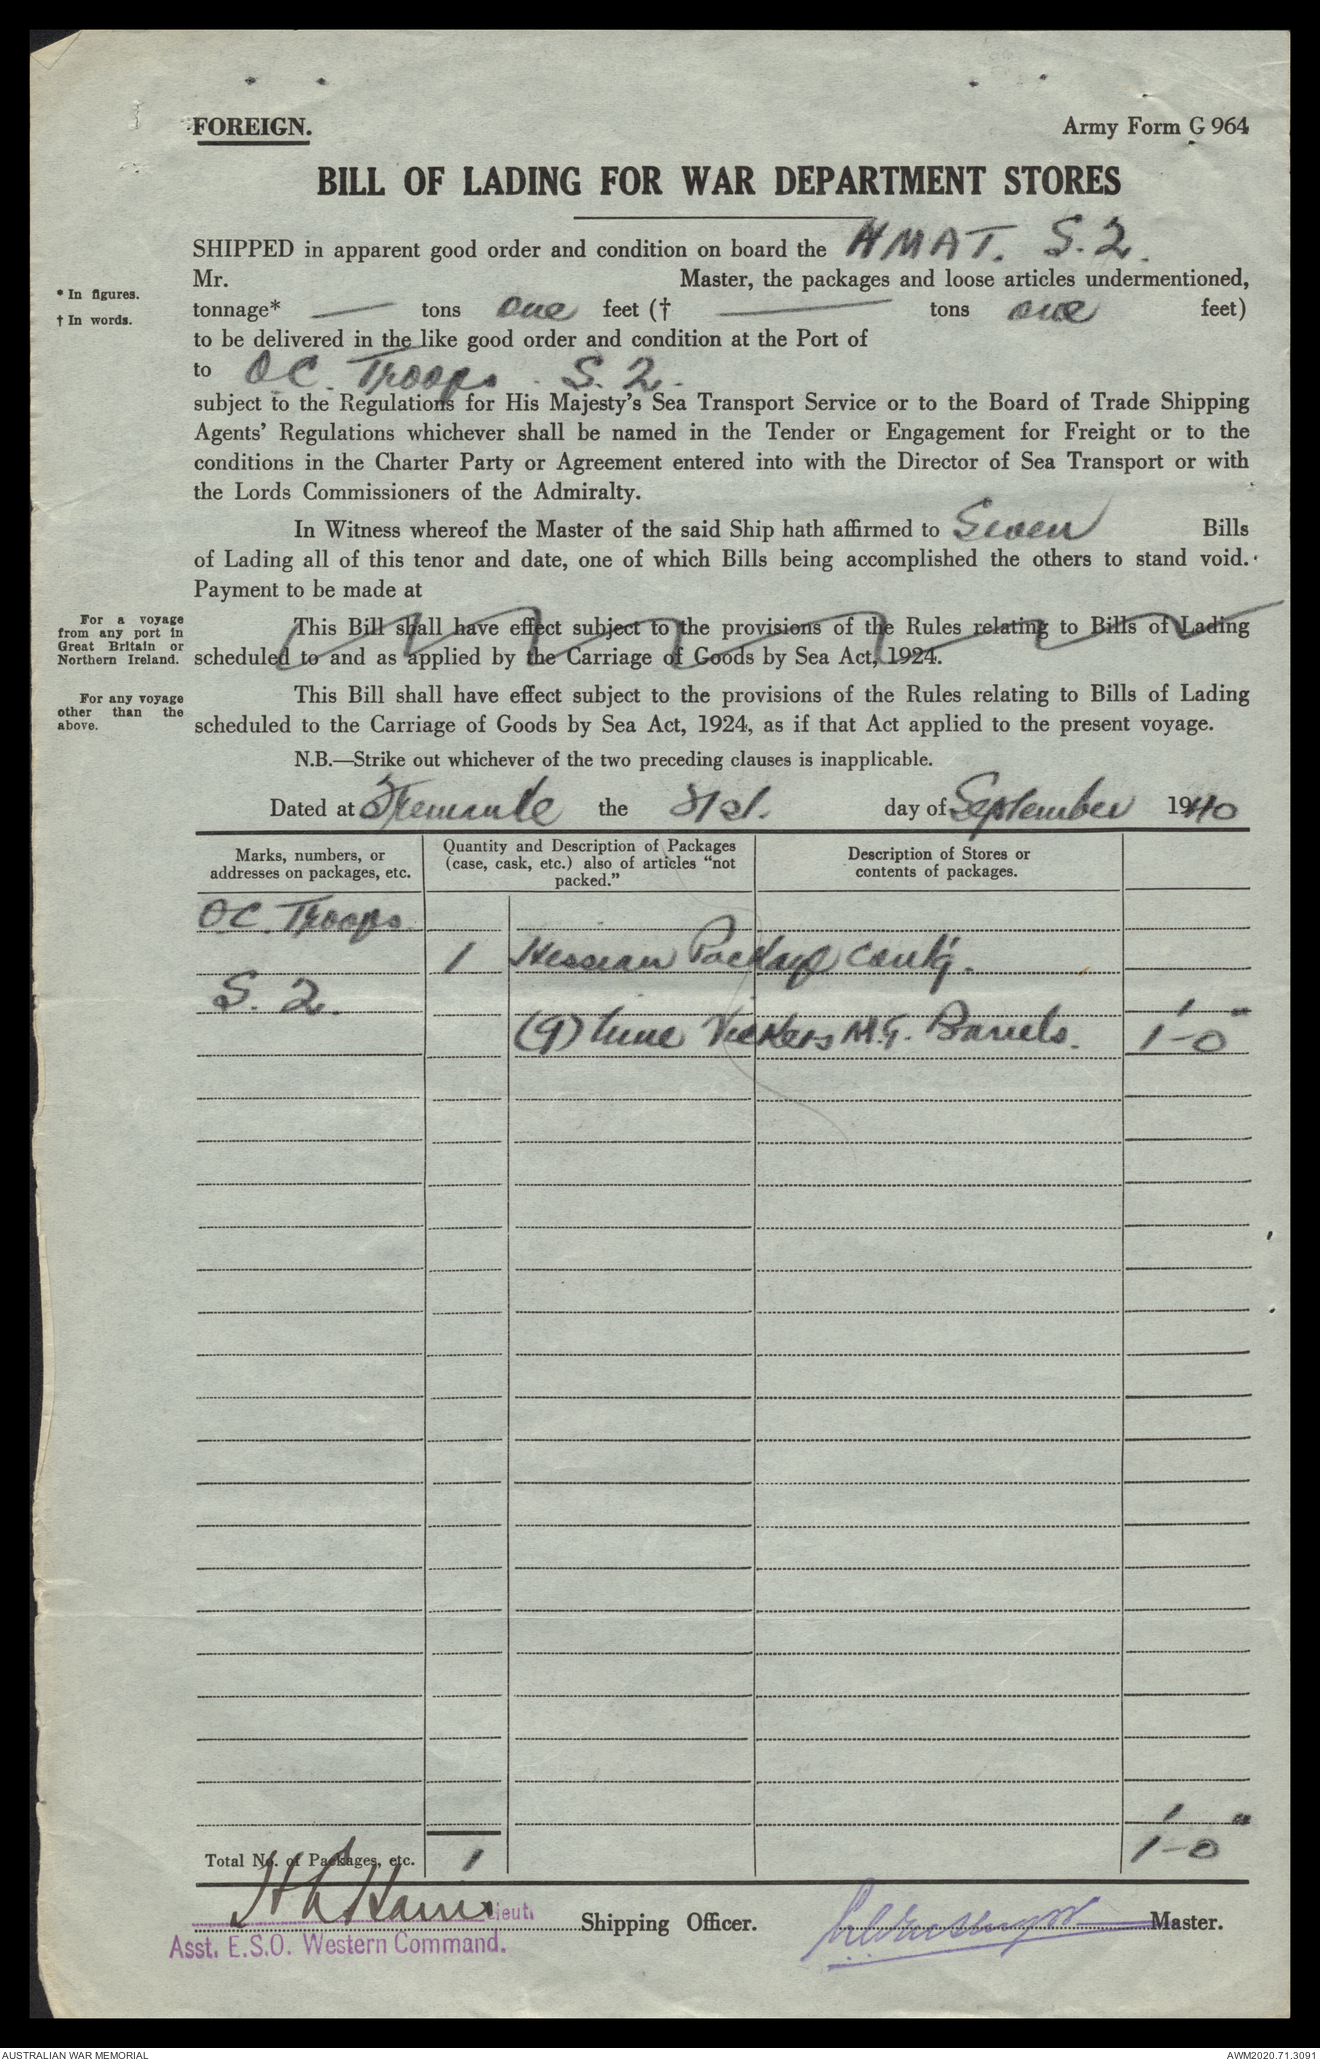 FOREIGN.
Army Form G 964
BILL OF LADING FOR WAR DEPARTMENT STORES
SHIPPED in apparent good order and condition on board the HMAT. S.2.
Mr. Master, the packages and loose articles undermentioned,
* In figures.
tonnage* — tons one feet († — tons one feet)
† In words.
to be delivered in the like good order and condition at the Port of
to OC. Troops. S.2.
subject to the Regulations for His Majesty's Sea Transport Service or to the Board of Trade Shipping
Agents' Regulations whichever shall be named in the Tender or Engagement for Freight or to the
conditions in the Charter Party or Agreement entered into with the Director of Sea Transport or with
the Lords Commissioners of the Admiralty.
In Witness whereof the Master of the said Ship hath affirmed to Seven Bills
of Lading all of this tenor and date, one of which Bills being accomplished the others to stand void.
Payment to be made at
For a voyage
from any port in
Great Britain or
Northern Ireland.
This Bill shall have effect subject to the provisions of the Rules relating to Bills of Lading
scheduled to and as applied by the Carriage of Goods by Sea Act, 1924.
For any voyage
other than the
above.
This Bill shall have effect subject to the provisions of the Rules relating to Bills of Lading
scheduled to the Carriage of Goods by Sea Act, 1924, as if that Act applied to the present voyage.
N.B.—Strike out whichever of the two preceding clauses is inapplicable.
Dated at Fremantle the 21st. day of September 1940
Marks, numbers, or
addresses on packages, etc.
Quantity and Description of Packages
(case, cask, etc.) also of articles "not
packed."
Description of Stores or
contents of packages.
OC. Troops.
1 Hessian Package Cont'g.
S. 2.
(9) Nine Vickers M.G. Barrels. 1'-0"
Total No. of Packages, etc. 1 1'-0"
Lieut.
Shipping Officer.
Master.
Asst. E.S.O. Western Command.
AUSTRALIAN WAR MEMORIAL
AWM2020.71.3091